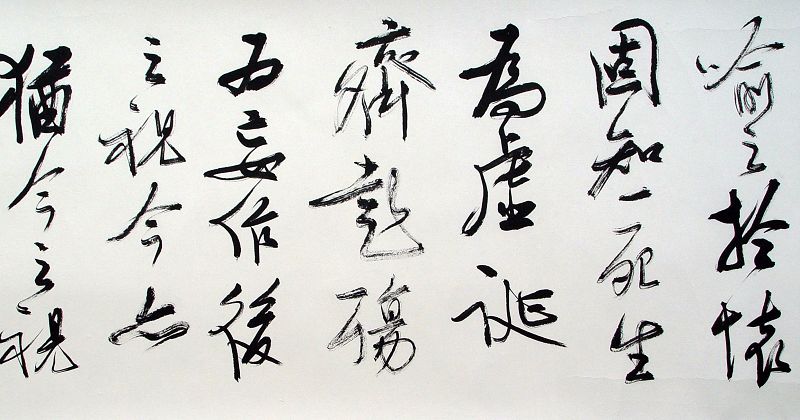 喻之於懷
固知一死生
為虛誕
齊彭殤
为妄作後
之視今亦
猶今之視